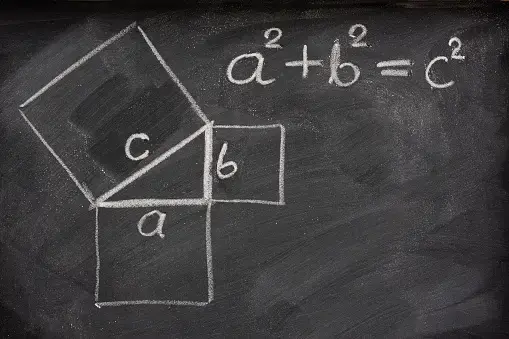 a² + b² = c²
c
b
a